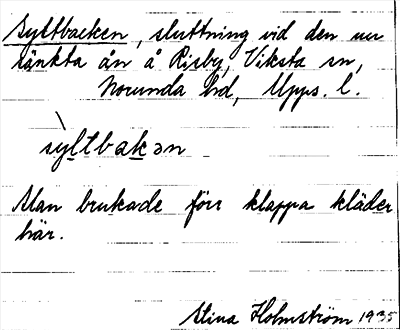 Syltbacken, sluttning vid den nu
sänkta ån å Risby, Viksta sn,
Norunda hd, Upps. l.
sỳltbakən
Man brukade förr klappa kläder
här.
Stina Holmström 1935